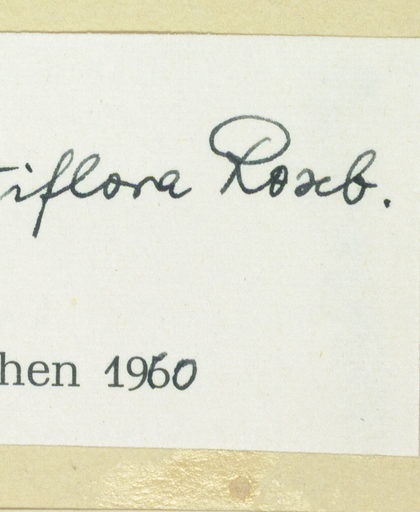 tiflora Roxb.
hen 1960